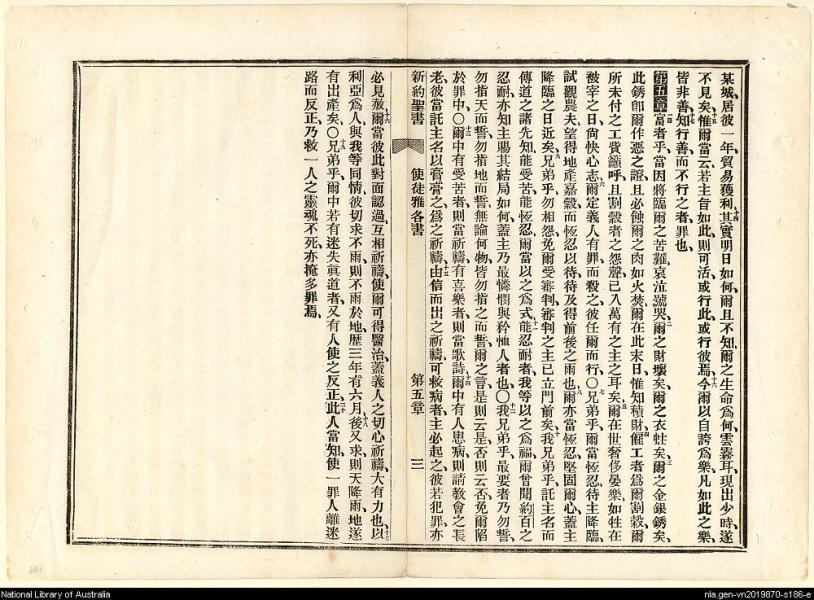 某城居彼一年貿易獲利其實明日如何爾且不知爾之生命爲何雲霧耳現出少時遂
不見矣惟爾當云若主旨如此則可活或行此或行彼焉今爾以自誇爲樂凡如此之樂
皆非善知行善而不行之者罪也
第五章富者乎當因將臨爾之苦難哀泣號哭爾之財壞矣爾之衣蛀矣爾之金銀銹矣
此銹即爾作惡之證且必蝕爾之肉如火焚爾在此末日惟知積財傭工者爲爾割穀爾
所未付之工貲籲呼且割穀者之怨聲已入萬有之主之耳矣爾在世奢侈晏樂如牲在
被宰之日尙快心志爾定義人有罪而殺之彼任爾而行〇兄弟乎爾當恆忍待主降臨
試觀農夫望得地產嘉穀而恆忍以待待及得前後之雨也爾亦當恆忍堅固爾心蓋主
降臨之日近矣兄弟乎勿相怨免爾受審判審判之主已立門前矣我兄弟乎託主名而
傳道之諸先知能受苦能恆忍爾當以之爲式能忍耐者我等以之爲福爾曾聞約百之
忍耐亦知主賜其結局如何蓋主乃最憐憫與矜恤人者也〇我兄弟乎最要者乃勿誓
勿指天而誓勿指地而誓無論何物皆勿指之而誓爾之言是則云是否則云否免爾陷
於罪中〇爾中有受苦者則當祈禱有喜樂者則當歌詩爾中有人患病則請教會之長
老彼當託主名以膏膏之爲之祈禱由信而出之祈禱可救病者主必起之彼若犯罪亦
新約聖書 使徒雅各書 第五章 三
必見赦爾當彼此對面認過互相祈禱使爾可得醫治蓋義人之切心祈禱大有力也以
利亞爲人與我等同情彼切求不雨則不雨於地歷三年有六月後又求則天降雨地遂
有出產矣〇兄弟乎爾中若有迷失眞道者又有人使之反正此人當知使一罪人離迷
路而反正乃救一人之靈魂不死亦掩多罪焉
National Library of Australia
nla.gen-vn2019870-s186-e